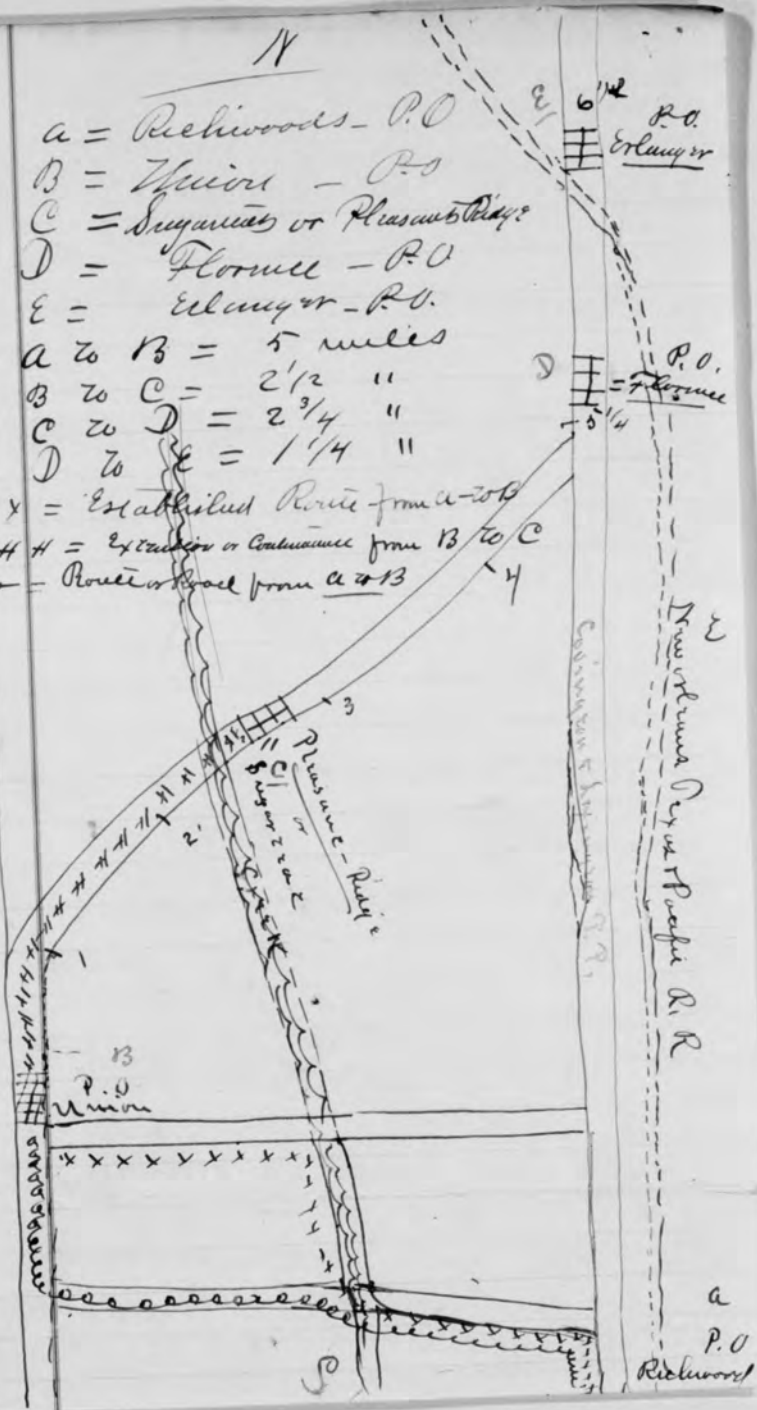 N
a = Richwoods - P.O
B = Union - P.O
C = Sugartit or Pleasant Ridge
D = Florence - P.O
E = Erlanger - P.O.
a to B = 5 miles
B to C = 2 1/2 "
C to D = 2 3/4 "
D to E = 1 1/4 "
x = Established Route from a to B
# # = Extension or Continuance from B to C
- Route or Road from a to B
E
6 1/2
P.O.
Erlanger
D
P.O.
= Florence
5 1/4
4
3
2
1
"C"
Pleasant-Ridge
or
Sugartit
Creek
Covington & Lexington R.R.
E
New Orleans Texas & Pacific R.R
B
P.O
Union
a
P.O
Richwood
S